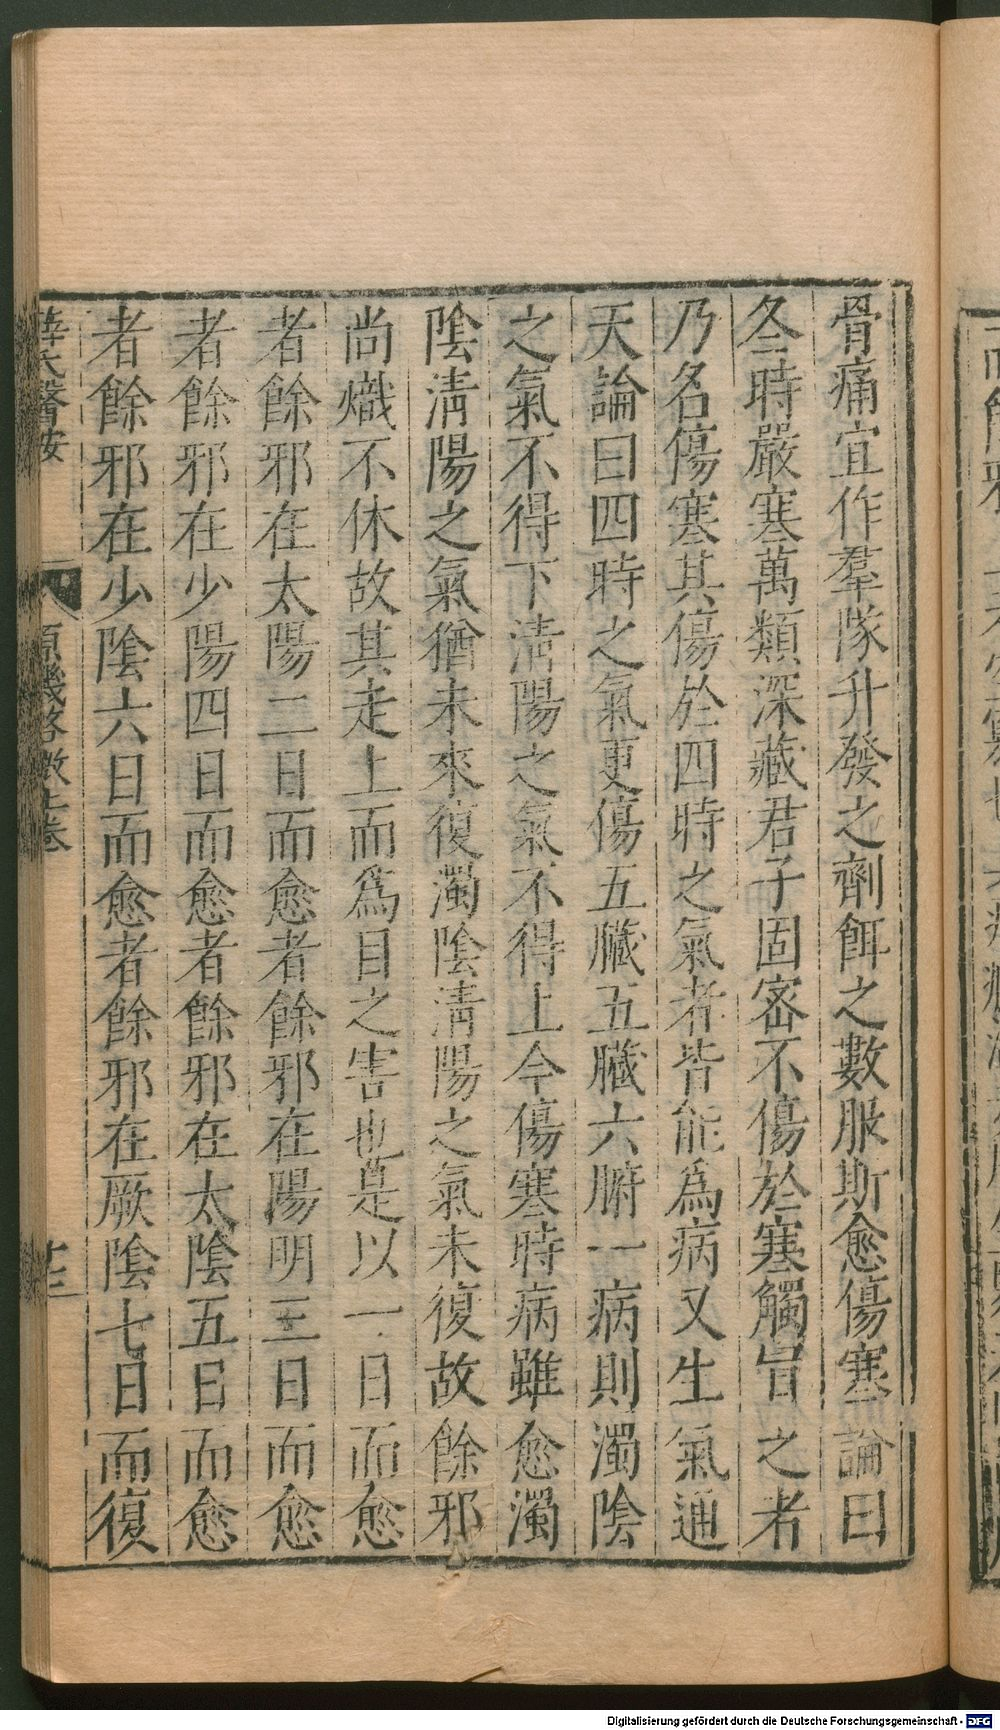 骨痛宜作羣隊升發之劑餌之數服斯愈傷寒論曰
冬時嚴寒萬類深藏君子固密不傷於寒觸冒之者
乃名傷寒其傷於四時之氣者皆能爲病又生氣通
天論曰四時之氣更傷五臟五臟六腑一病則濁陰
之氣不得下淸陽之氣不得上今傷寒時病雖愈濁
陰淸陽之氣猶未來復濁陰淸陽之氣未復故餘邪
尚熾不休故其走上而爲目之害也是以一日而愈
者餘邪在太陽二日而愈者餘邪在陽明三日而愈
者餘邪在少陽四日而愈者餘邪在太陰五日而愈
者餘邪在少陰六日而愈者餘邪在厥陰七日而復
薛氏醫按 原機啓微上卷
Digitalisierung gefördert durch die Deutsche Forschungsgemeinschaft - DFG